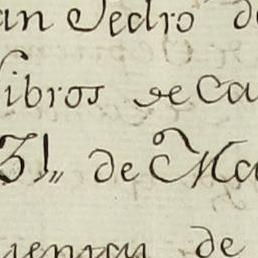 an Pedro de
libros de ca
31,, de Ma
de